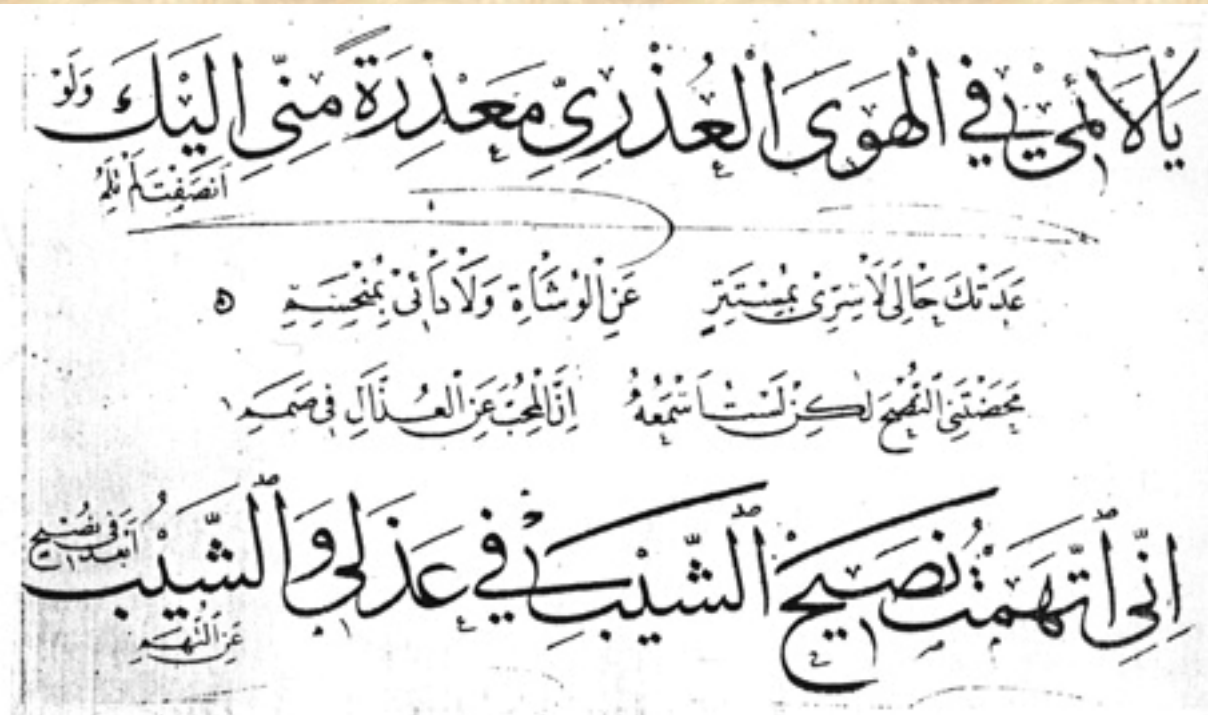 يَا لَائِمِي فِي الْهَوَى الْعُذْرِيِّ مَعْذِرَةً مِنِّي اِلَيْكَ وَلَوْ
اَنْصَفْتَ لَمْ تَلُمِ
عَدَتْكَ حَالِيَ لَا سِرِّي بِمُسْتَتِرٍ عَنِ الْوُشَاةِ وَلَا دَائِي بِمُنْحَسِمِ ه
مَحَضْتَنِي النُّصْحَ لٰكِنْ لَسْتُ اَسْمَعُهُ اِنَّ الْمُحِبَّ عَنِ الْعُذَّالِ فِي صَمَمِ
اِنِّي اتَّهَمْتُ نَصِيحَ الشَّيْبِ فِي عَذَلِي وَالشَّيْبُ اَبْعَدُ فِي نُصْحٍ
عَنِ التُّهَمِ